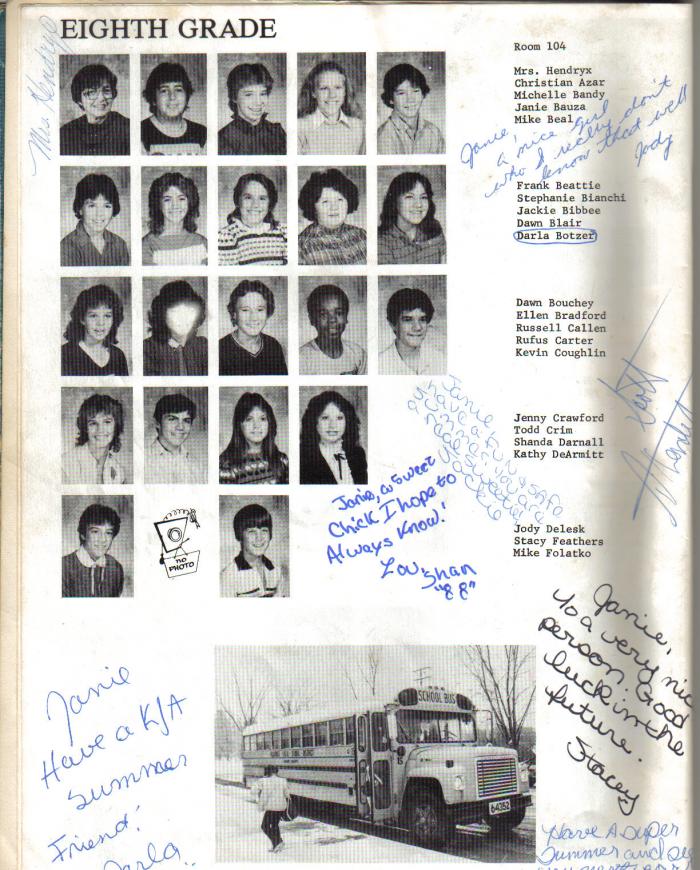 EIGHTH GRADE
Mrs. Hendryx
Room 104
Mrs. Hendryx
Christian Azar
Michelle Bandy
Janie Bauza
Mike Beal
Janie,
a nice girl
who I really don't
know that well
Jody
Frank Beattie
Stephanie Bianchi
Jackie Bibbee
Dawn Blair
Darla Botzer
Dawn Bouchey
Ellen Bradford
Russell Callen
Rufus Carter
Kevin Coughlin
Scott
Jenny Crawford
Todd Crim
Shanda Darnall
Kathy DeArmitt
Janie
have a fun & safe
summer you are
a sweetie
Jackie
Janie, a sweet
chick I hope to
Always know!
Lov, Shan
"88"
Jody Delesk
Stacy Feathers
Mike Folatko
NO
PHOTO
Janie,
to a very nic
person. Good
luck in the
future.
Stacey
Janie
Have a K/A
summer
Friend!
Darla
SCHOOL BUS
64352
Have A super
summer and see